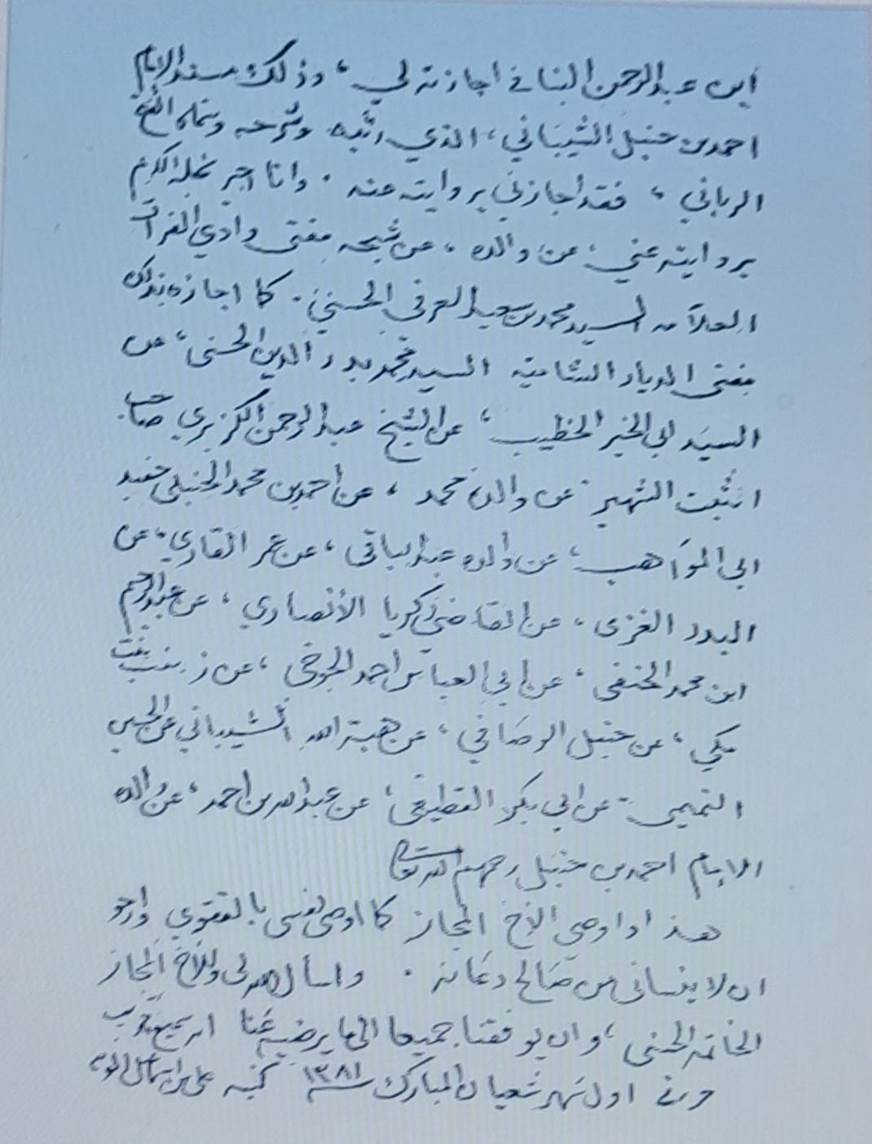 ابن عبد الرحمن البنا في اجازته لي، وذلك مسند الامام
احمد بن حنبل الشيباني، الذي رتبه وشرحه وسماه الفتح
الرباني، فقد اجازني بروايته عنه. وانا اجيز نجله الكريم
بروايته عني، عن والده، عن شيخه مفتي وادي الفرات
العلامه السيد محمد سعيد العرفي الحسيني. كما اجازه بذلك
مفتى الديار الشاميه السيد محمد بدر الدين الحسنى، عن
السيد ابي الخير الخطيب، عن الشيخ عبد الرحمن الكزبري صاحب
الثبت الشهير. عن والده محمد، عن احمد بن محمد الحنبلى حفيد
ابى المواهب، عن والده عبد الباقى، عن عمر القاري، عن
البدر الغزى، عن القاضي زكريا الأنصاري، عن عبد الرحيم
ابن محمد الحنفى، عن ابي العباس احمد الجوخى، عن زينب بنت
مكي، عن حنبل الرصافي، عن هبة الله الشيباني عن الحسن
التميمى. عن ابي بكر القطيعى، عن عبد الله بن احمد، عن والده
الامام احمد بن حنبل رحمهم الله تعالى
هذا واوصي الأخ المجاز كما اوصى نفسى بالتقوي وارجو
ان لا ينسانى من صالح دعائه. واسأل الله لى وللأخ المجاز
الخاتمه الحسنى، وان يوفقنا جميعا الى ما يرضيه عنا انه سميع قريب
حرر في اول شهر شعبان المبارك سنة ١٣٨١ كتبه على بن